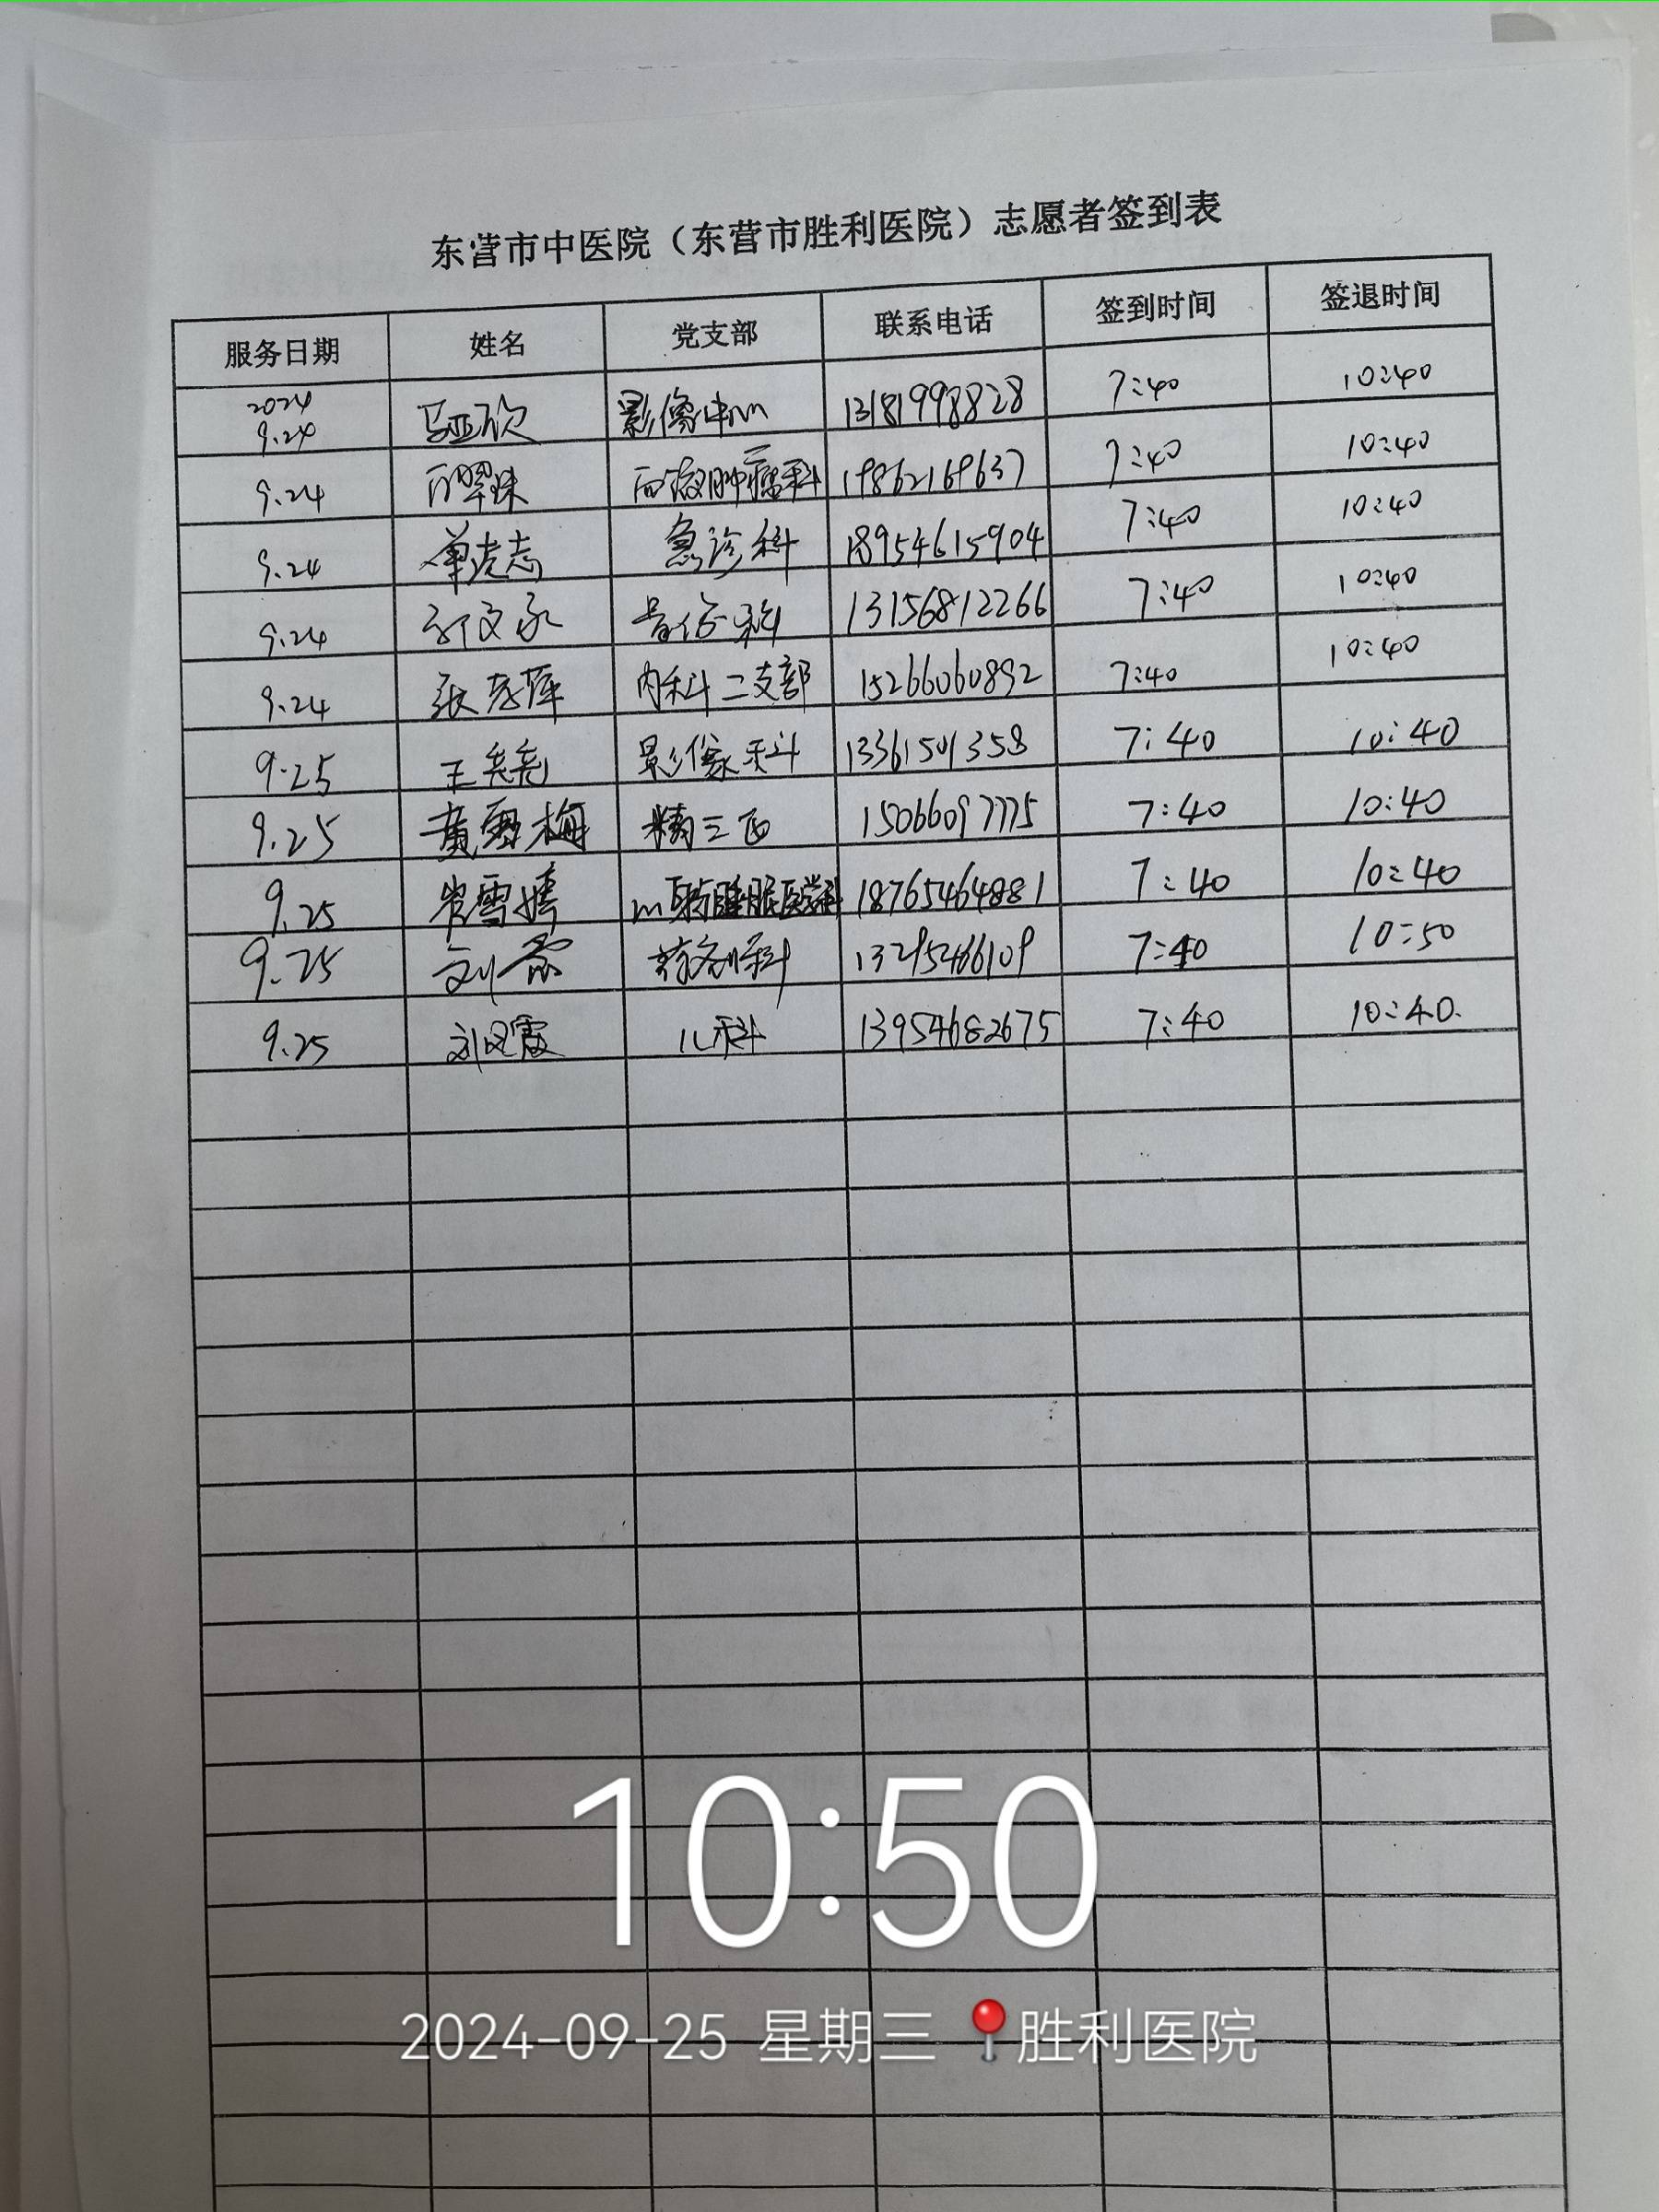 东营市中医院（东营市胜利医院）志愿者签到表
服务日期 姓名 党支部 联系电话 签到时间 签退时间
2024 9.24 马亚欣 影像中心 13181998828 7:40 10:40
9.24 翠珠 肿瘤科 19862169637 7:40 10:40
9.24 志 急诊科 18954615904 7:40 10:40
9.24 文 骨伤科 13156812266 7:40 10:40
9.24 张 内科二支部 15266060892 7:40 10:40
9.25 王 影像科 13361501358 7:40 10:40
9.25 黄雪梅 精三区 15066097775 7:40 10:40
9.25 雪 睡眠医学科 18765464881 7:40 10:40
9.25 刘 药剂科 7:40 10:50
9.25 刘凤霞 儿科 13954682675 7:40 10:40.
10:50
2024-09-25 星期三 胜利医院